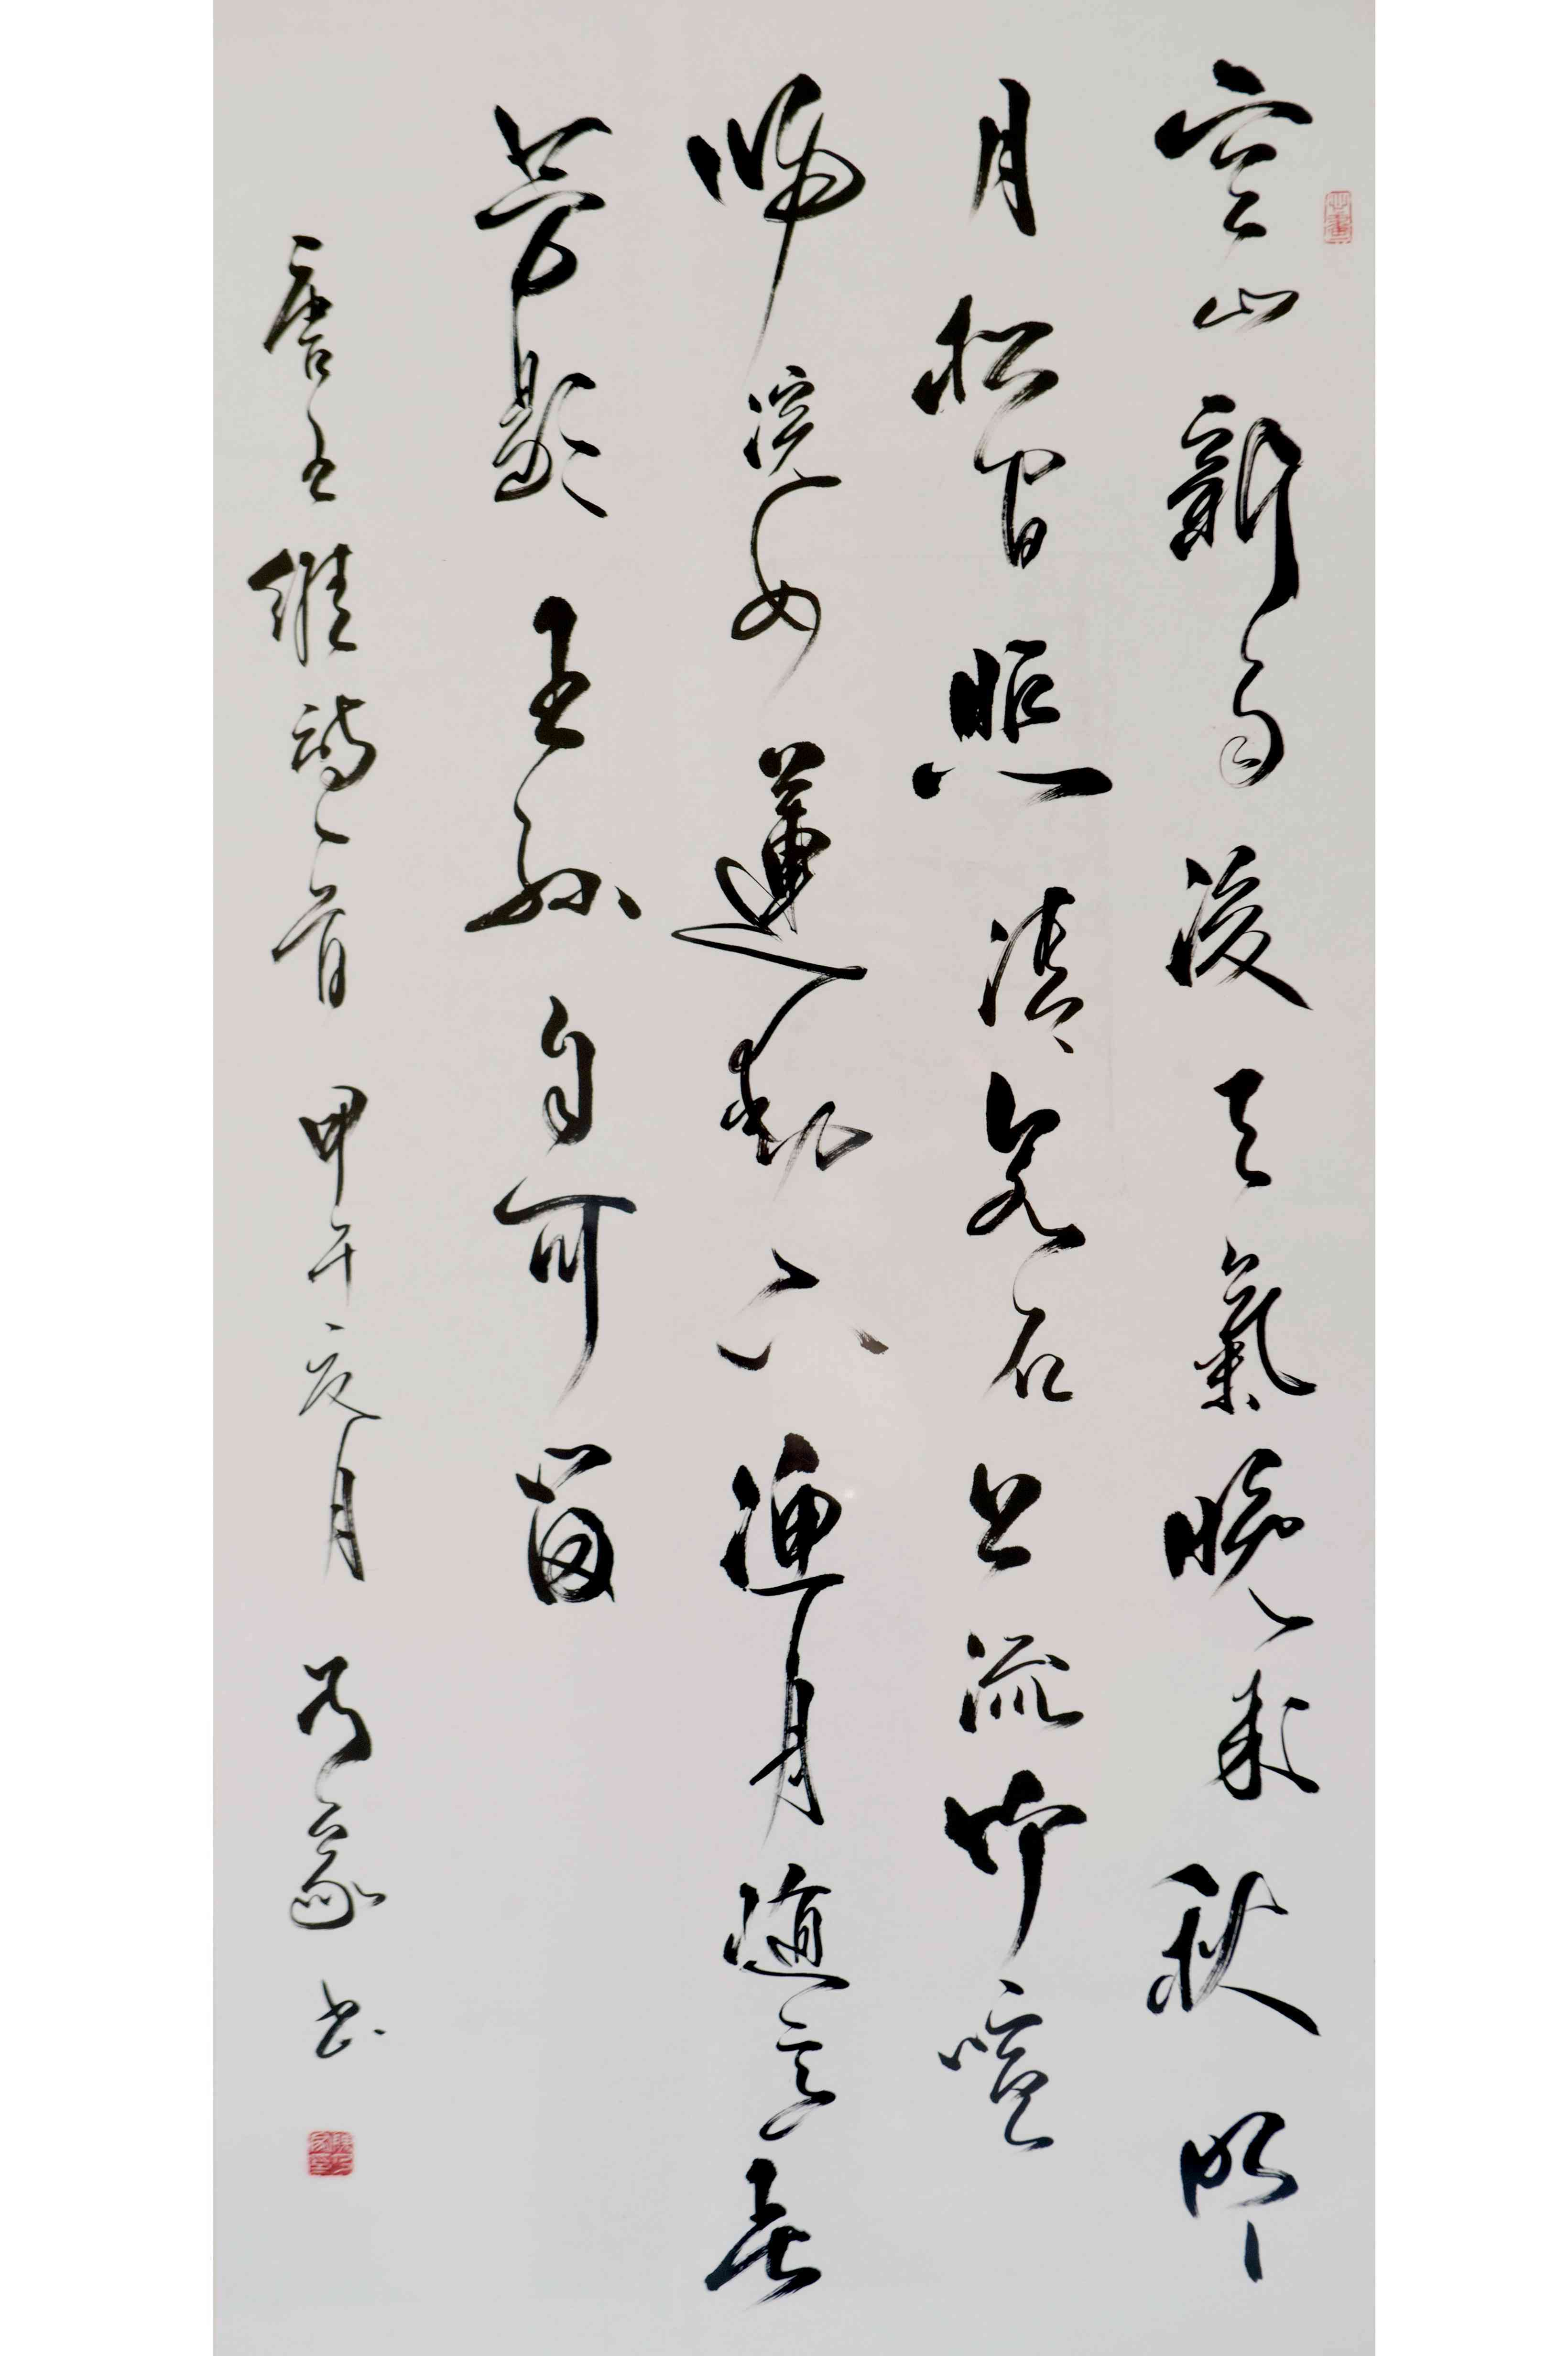 空山新雨後天氣晚來秋明
月松間照清泉石上流竹喧
歸浣女蓮動下漁舟隨意春
芳歇王孫自可留
唐王維詩一首 甲午夏月 书